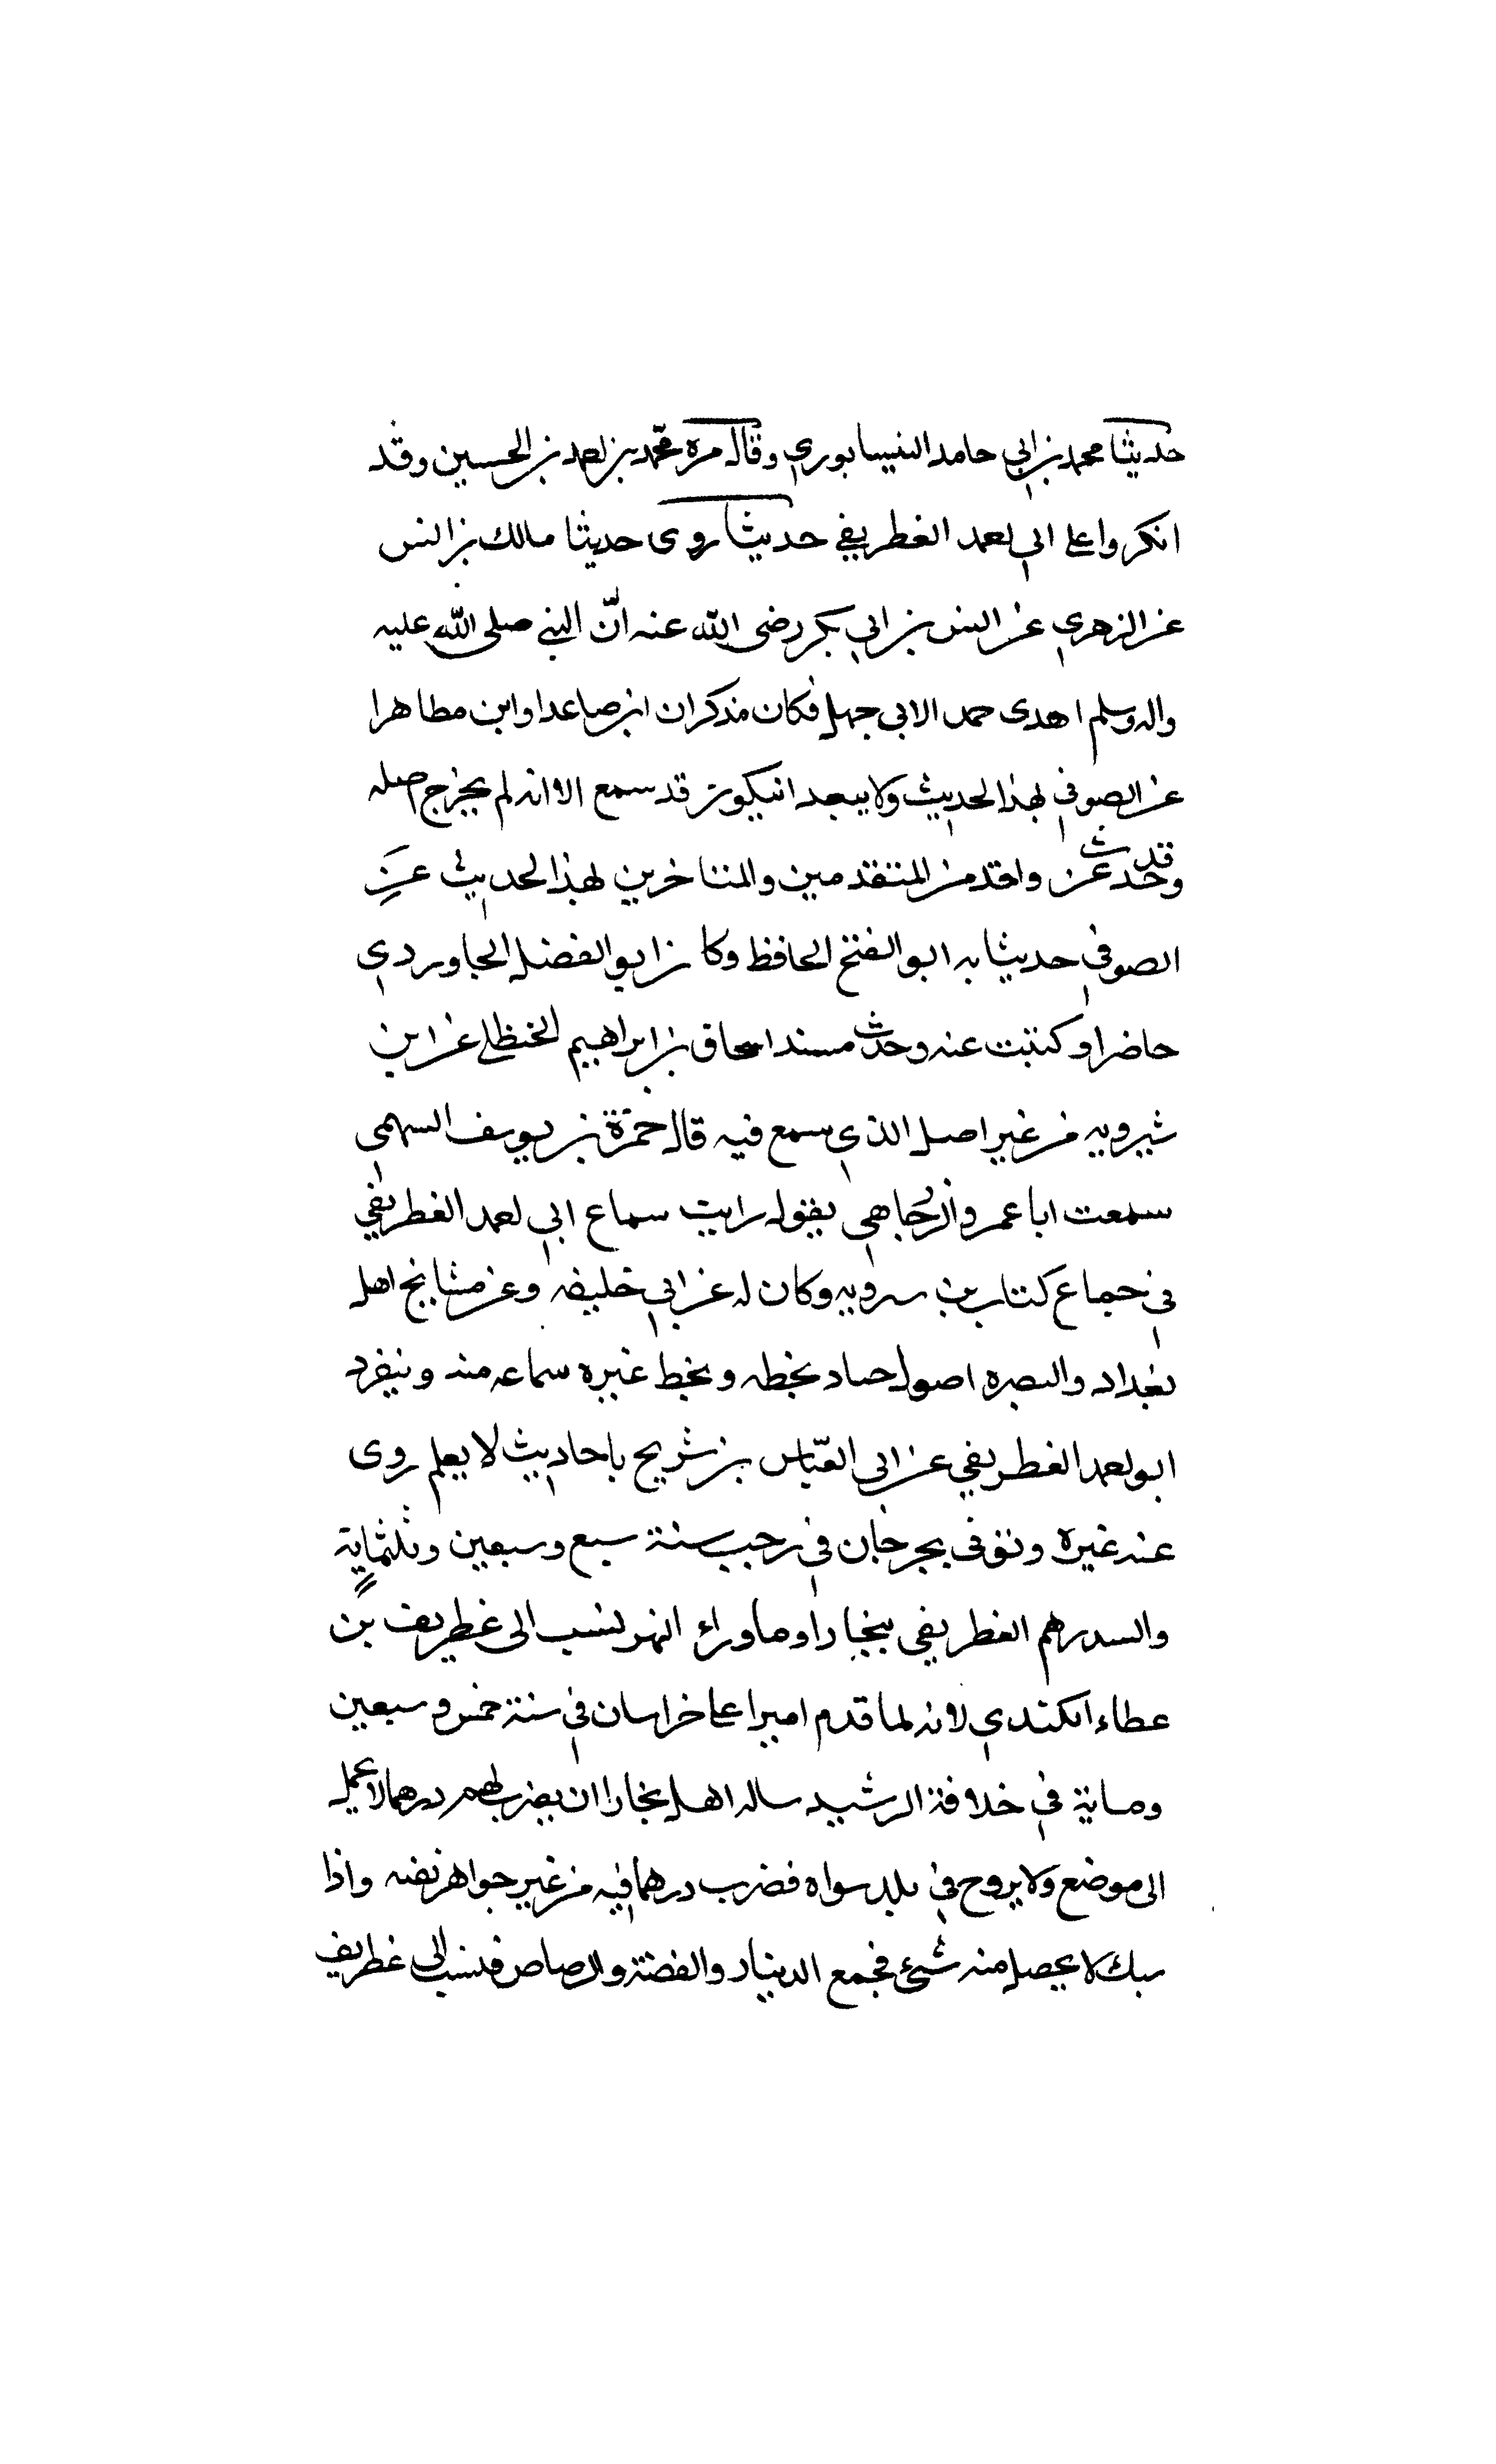 حديثا محمد بن ابي حامد النيسابوري وقال مرة محمد بن احمد بن الحسين وقد
انكروا على ابي احمد الغطريفي حديثا روى حديثا مالك بن انس
عن الزهري عن انس بن ابي بكر رضى الله عنه انّ النبي صلى الله عليه
واله وسلم اهدى جمد الابي جهل فكان يذكر ان ابن صاعدا وابن مطاهرا
عن الصوفي لهذا الحديث ولا يبعد ان يكون قد سمع الا انه لم يخرج اصله
وقد حدث عن واقد من المتقدمين والمتاخرين لهذا الحديث عن
الصوفي حديثا به ابو الفتح الحافظ وكان ابو الفضل الجاوردي
حاضرا وكتبت عنه وحدث مسند اسحاق بن ابراهيم الحنظلي عن ابن
شيرويه من غير اصل الذي سمع فيه قال حمزة بن يوسف السهمى
سمعت ابا عمرو الرجاهي يقول رايت سماع ابي احمد الغطريفي
في جماع كتاب بن سرويه وكان له عن ابي خليفه وعن مشايخ اهل
بغداد والبصره اصول جياد بخطه وبخط غيره سماعه منه وينفرد
ابو احمد الغطريفي عن ابى العبّاس بن شريح باحاديث لا يعلم روى
عنه غيره وتوفى بجرجان في رجب سنة سبع وسبعين وثلثماية
والسدرهم الغطريفي ببخارا وما وراء النهر نسب الى غطريف بن
عطاء الكندي لانه لما قدم اميرا على خراسان في سنة خمس وسبعين
وماية في خلافة الرشيد ساله اهل بخارا ان يضرب لهم درهما لا يحمل
الى موضع ولا يروح في بلد سواه فضرب درهما فيه من غير جواهر نفسه واذا
سبك لا يحصل منه شيئ فجمع الدينار والفضة والرصاص فنسب الى غطريف